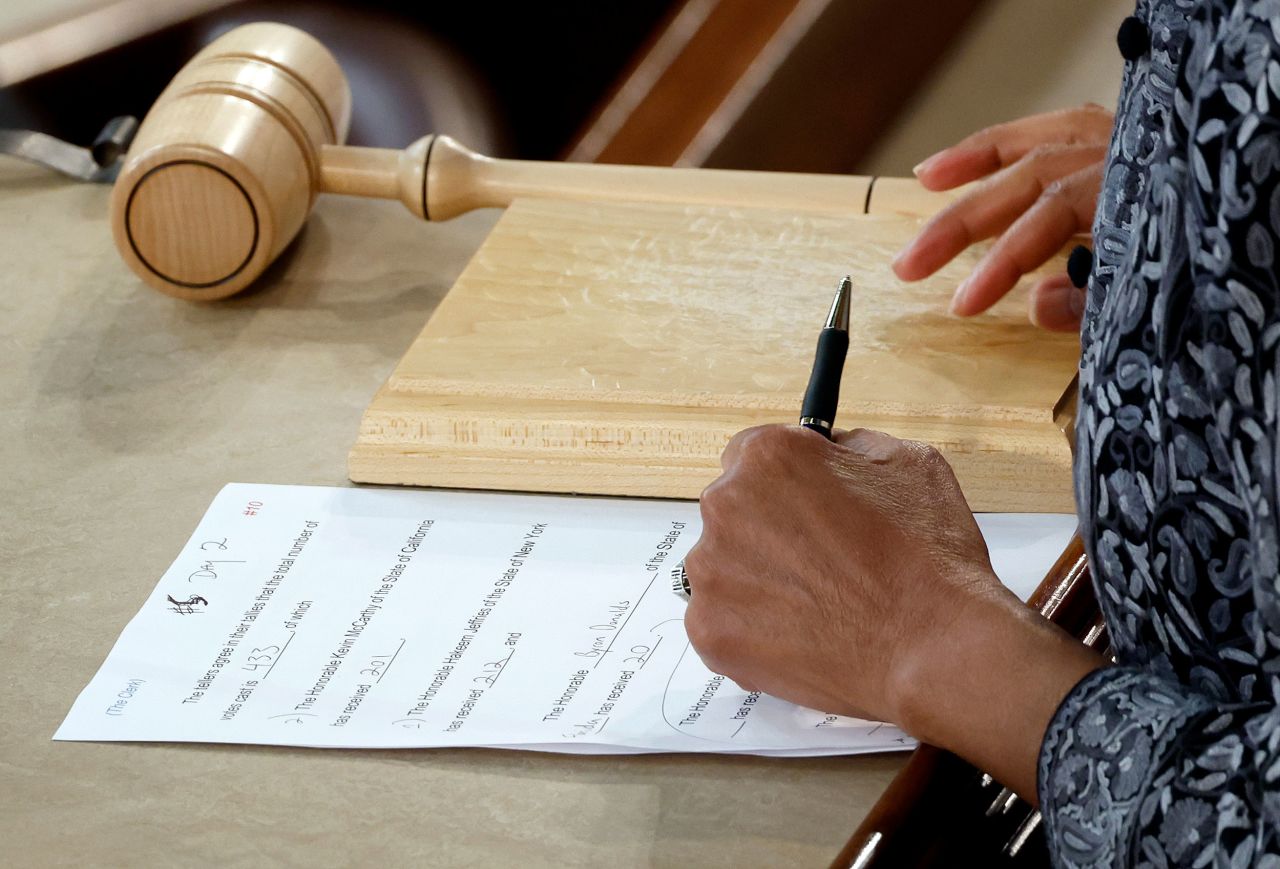 #10
Day 2
(The Clerk)
The tellers agree in their tallies that the total number of
votes cast is 433 of which
2) The Honorable Kevin McCarthy of the State of California
has received 201,
1) The Honorable Hakeem Jeffries of the State of New York
has received 212, and
The Honorable Byron Donalds of the State of
Florida has received 20,
The Honorable
has
The